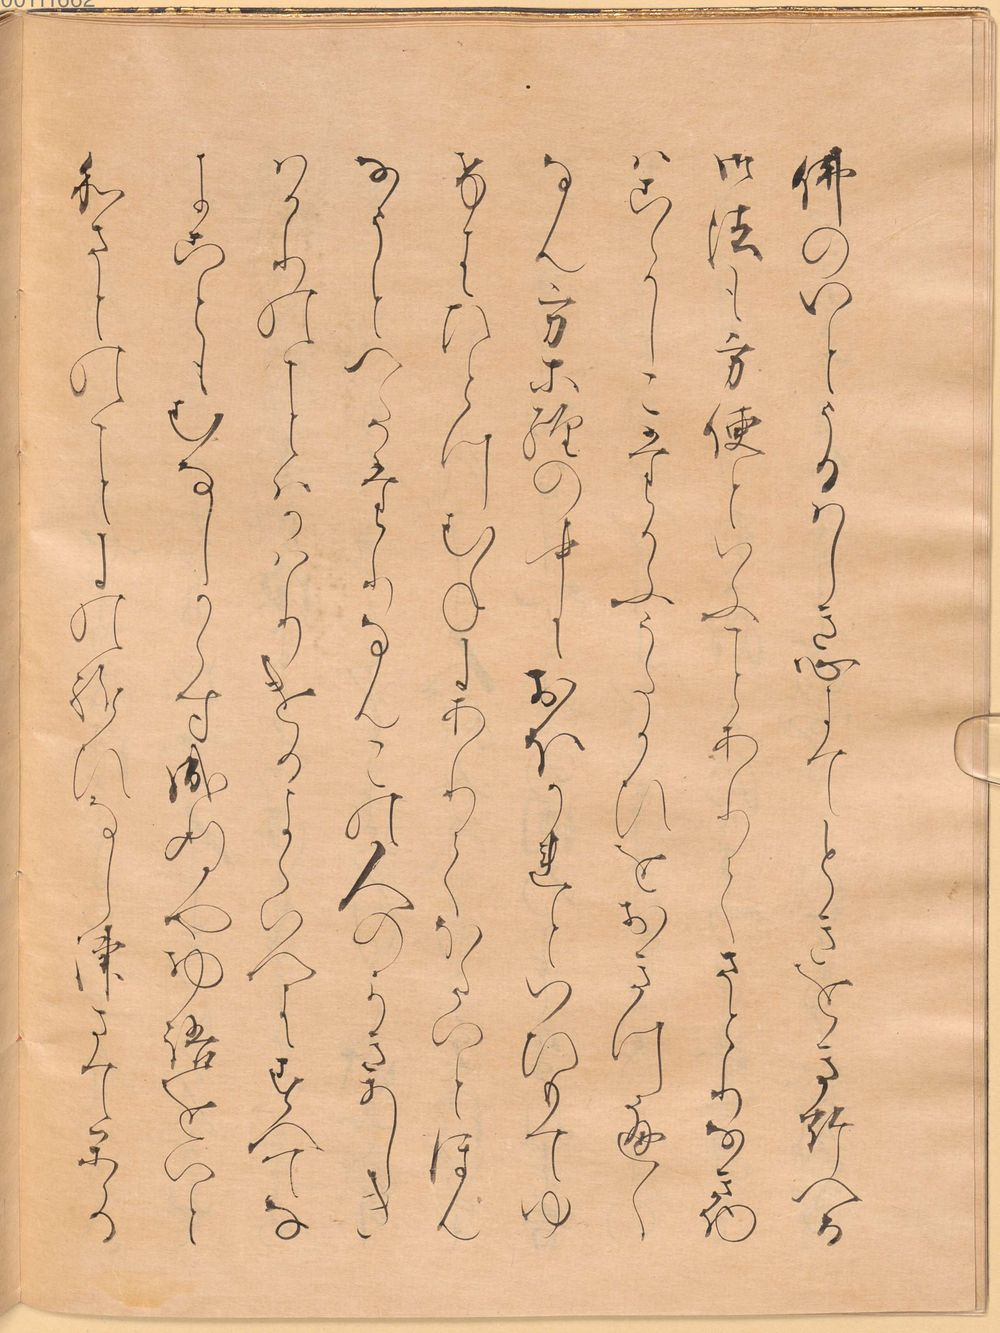 佛のいとうるはしき心にてときをき給へる
御法も方便といふことありてさとりなき物
はこゝかしこたかふうたかひをおきつへく
なん方等経の中におほかれといひもてゆ
けはひとつむねにありてほたいとほん
なうとのへたゝりなんこの人のよきあしき
はかりのことはかはりけるよくいへはすへてな
にこともむなしからすなりぬやと物語をいと
わさとのことにのたまひなしつさてかゝる